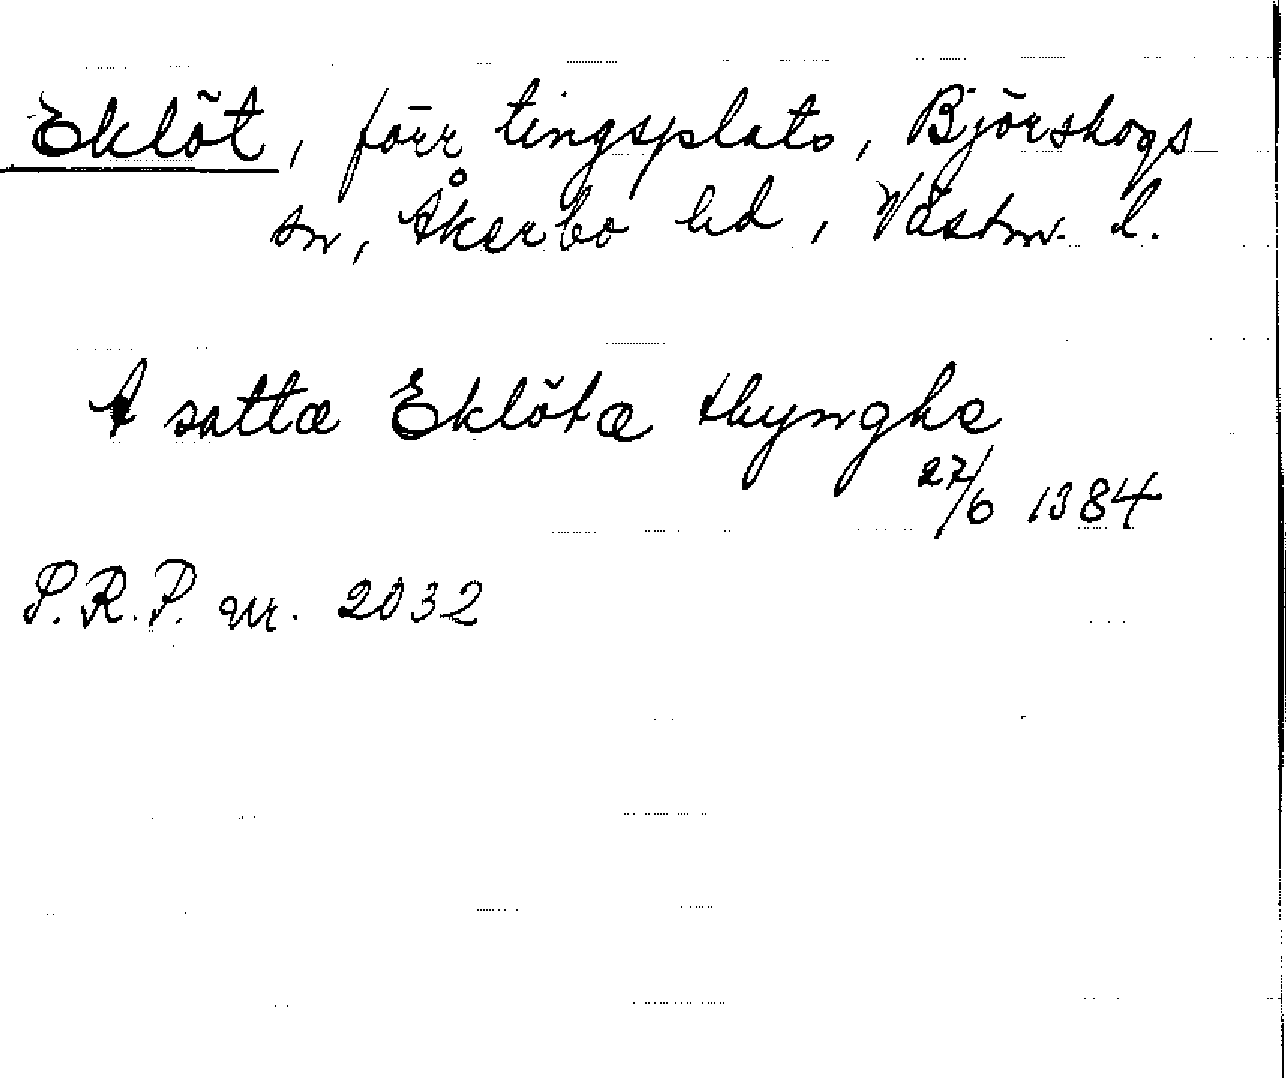 Eklöt, förr tingsplats, Björskogs
sn, Åkerbo hd, Västm. l.
A sattæ Eklötæ thynghe
27/6 1384
S.R.P. nr. 2032